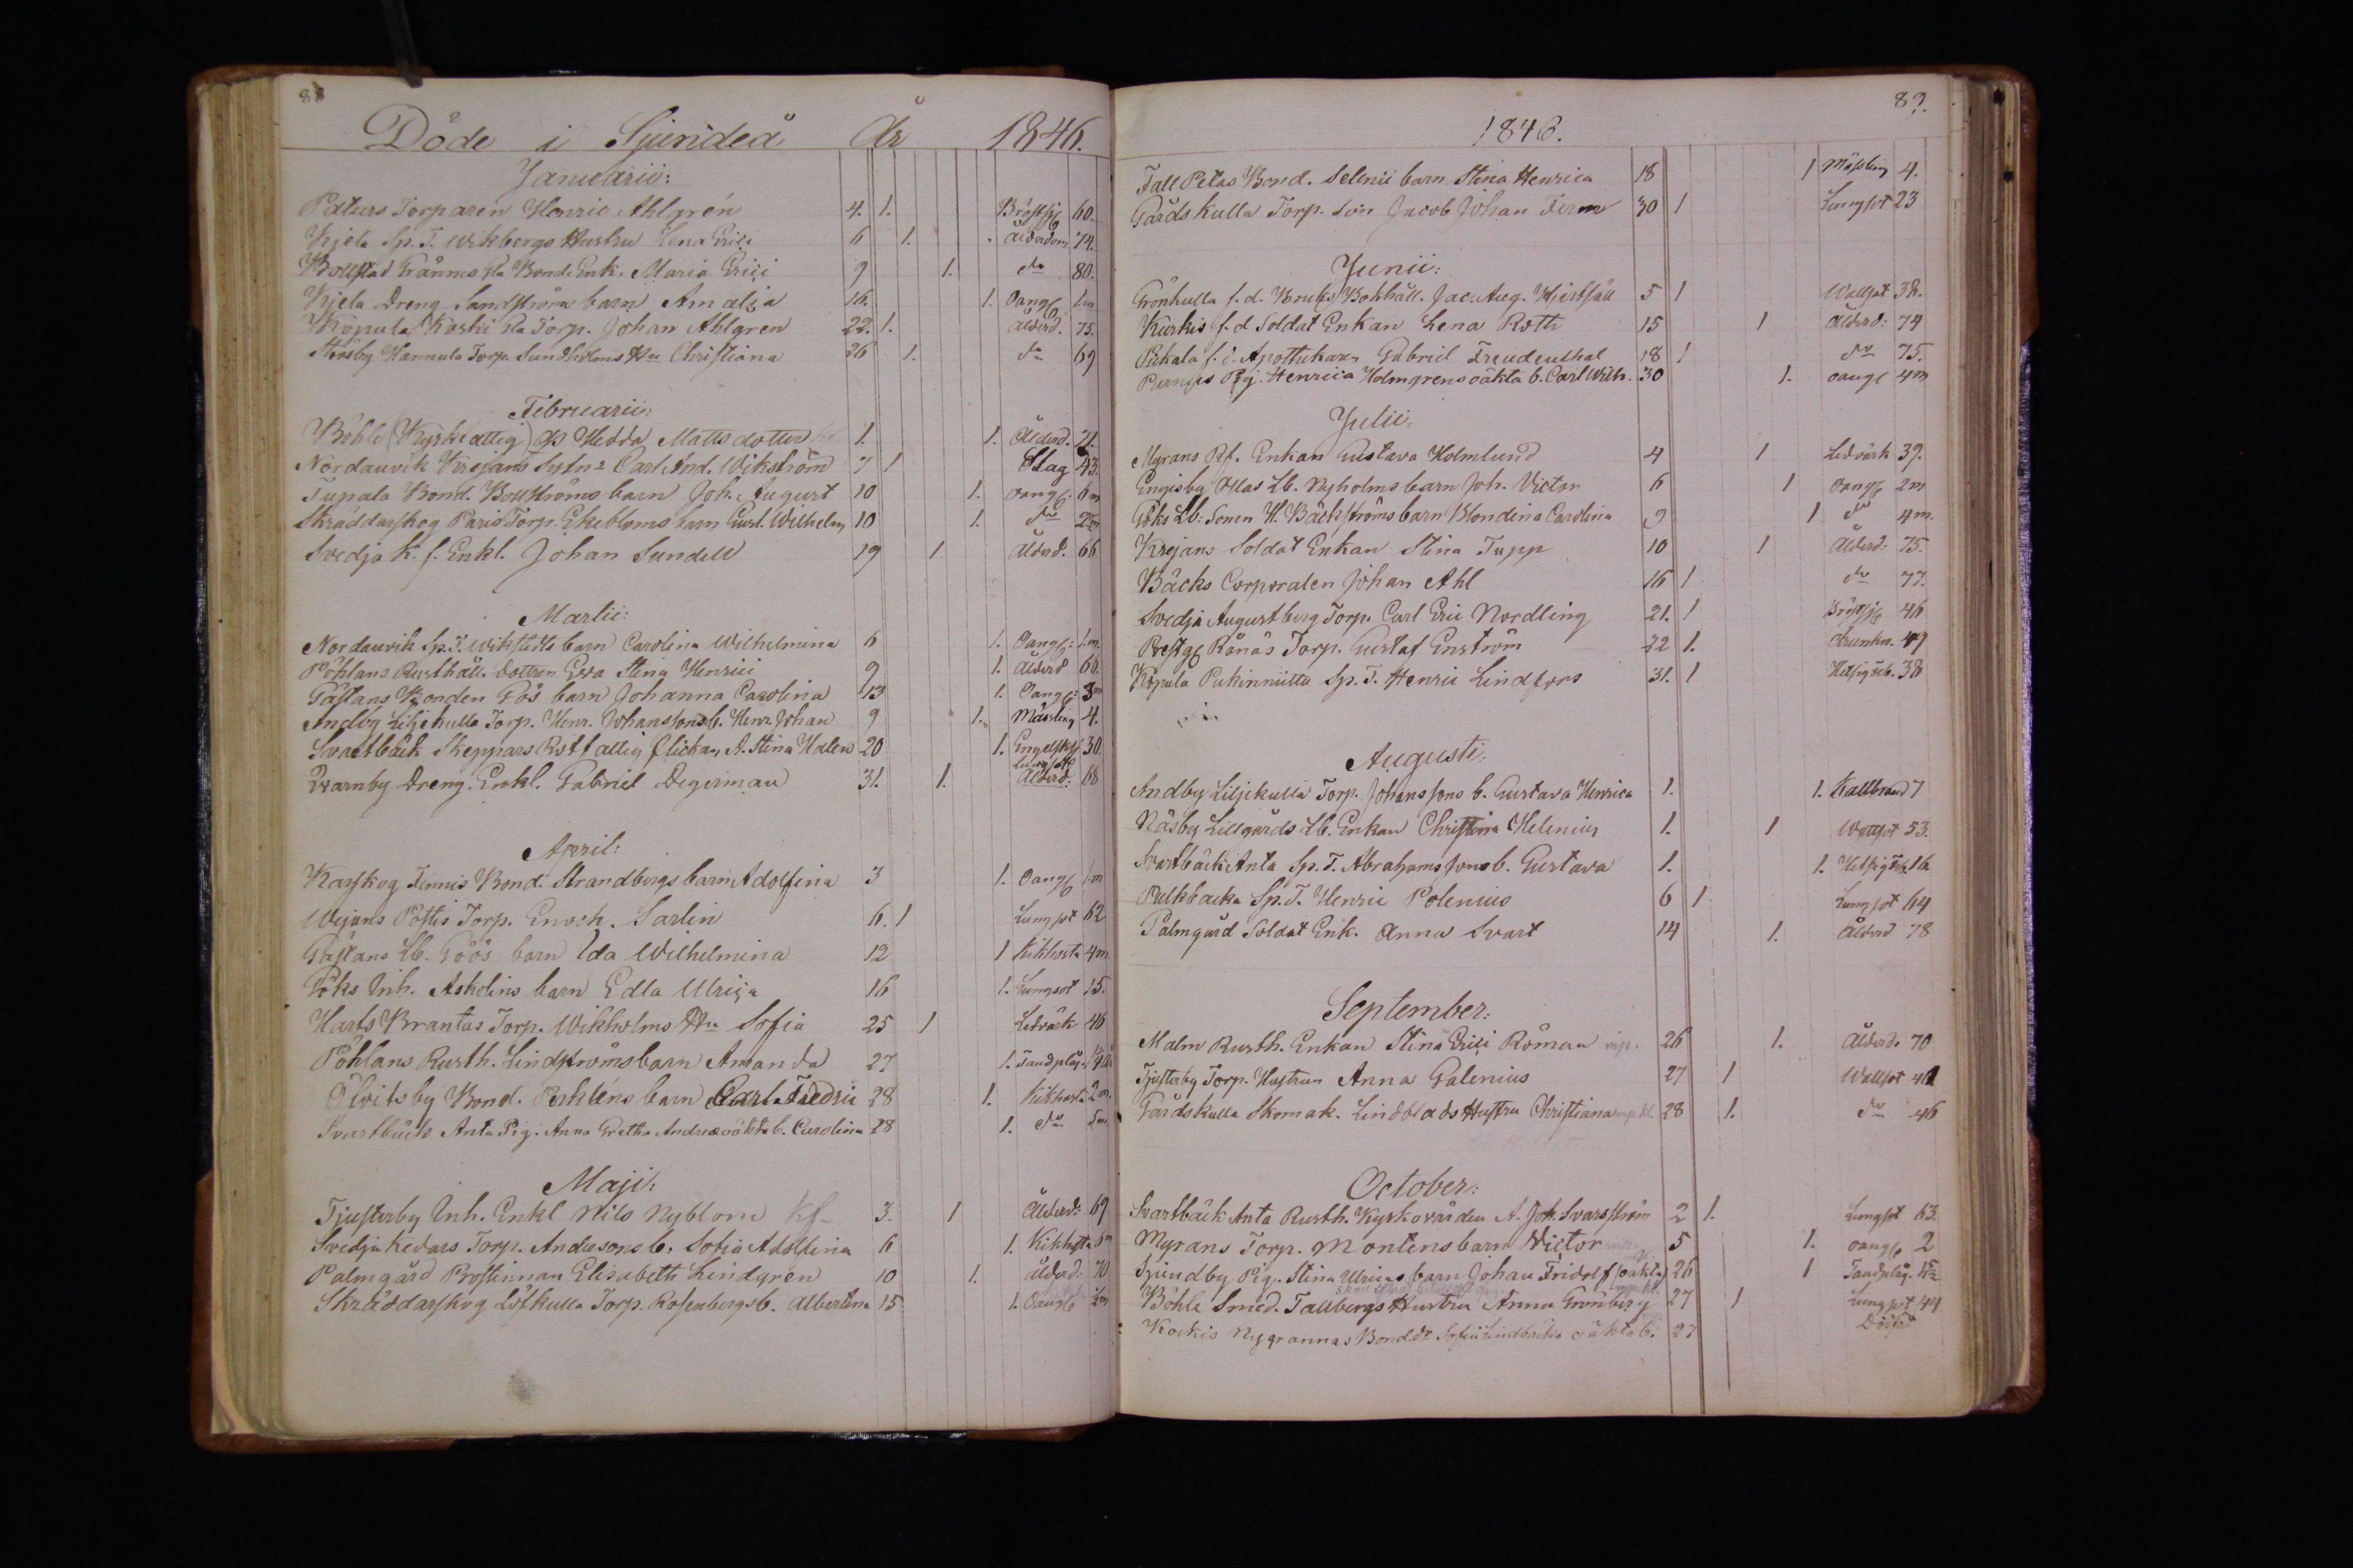 88
Döde i Sjundeå År 1846.
Januarii:
Paturs Torparen Henric Ahlgrén 4. 1. Bröstsj 60.
Kjela Sp. T. Wikbergs Hustru Lena Erici 6 1. Ålderdom 74.
Bollstad Grännas sla Bond. Enk. Maria Erici 9 1. do 80.
Kjela Dreng Sandströms barn Amalia 16. 1. Oang 1.m
Köpula Koski sla Torp. Johan Ahlgren 22. 1. Ålderd. 75.
Störsby Hannula Torp. Sundholms Hu Christiana 26 1. do 69
Februarii:
Böhle (Kyrk attig) Hedda Mattsdotter 1. 1. Ålderd.
Nordanvik Krejans Sytn: Carl And. Wikström 7 1 Slag 43.
Tupala Bond. Bollströms barn Joh. August 10 1. oang: 6m
Skräddarskog Paris Torp. Ekebloms barn Gust. Wilhelm 10 1. do
Svedja K. f. Enkl. Johan Sundell 19 1. Ålderd. 66
Martii:
Nordanvik Sp. T. Wikstedts barn Carolina Wilhelmina 6 1. Oang: 1.m
Pöhlans Rusthåll. Dottren Eva Stina Henrici 9 1. Ålderd 60.
Gästans Bonden Göös barn Johanna Carolina 13 1. Oang: 3m
Andby Liljekulla Torp. Henr. Johanssons b. Henr. Johan 9 1. Mässling 4.
Svartbäck Skeppars Rotfattig flickan A. Stina Holen 20 1. Engelsksj 30.
Qvarnby Dreng. Enkl. Gabriel Degerman 31. 1. Lungsot Ålderd. 68
April:
Karskog Finnis Bond. Strandbergs barn Adolfina 3 1. Oang 1.m
Wejans Postis Torp. Enoch. Sarlin 6. 1 Lungsot 62
Gästans Lb. Göös barn Ida Wilhelmina 12 1 Kikhosta 4m
Göks Inh. Askolins barn Edla Ulrica 16 1. Lungsot 15.
Harts Brantas Torp. Wikholms Hu Sofia 25 1 Ledvärk 46
Pöhlans Rusth. Lindströms barn Amanda 27 1. Tandplåg.
Ölvitsby Bond. barn Carl Fredric 28 1. Kikhosta 2m.
Svartbäck Anta Pig. Anna Greta Andreæ oäkta b. Carolina 28 1. do 5m
Maji:
Tjusterby Inh. Enkl Nils Nyblom Kf- 3. 1 Ålderd: 69
Svedja Kedars Torp. Andersons b. Sofia Adolfina 6 1. Kikhosta 6m
Palmgård Prostinnan Elisabeth Lindgren 10 1. Ålderd: 70
Skräddarskog Löfkulla Torp. Rosenbergs b. Albertina 15 1. Oang
89.
1846.
Tall Petas Bond. Selenii barn Stina Henrica 18 1 Mässling 4.
Gårdskulla Torp. Son Jacob Johan Ferm 30 1 Lungsot 23
Junii:
Grönkulla f. d. Bruks Bokhåll. Jac. Aug. Hjertsäll 5 1 Wattsot 38.
Kurkis f. d Soldat Enkan Lena Roth 15 1 Ålderd: 74
Pikala f. d. Apothekaren Gabriel Freudenthal 18 1 do 75.
Purnus Pig. Henrica Holmgrens oäkta b. Carl Wilh. 30 1. oang 4m
Julii:
Myrans Rf. Enkan Gustava Holmlund 4 1 Ledvärk 39.
Engisby Ollas Lb. Nyholms barn Joh. Victor 6 1 Oang 2m
Göks Lb: Sonen H. Bäckströms barn Blondina Carolina 9 1 do 4m.
Krejans Soldat Enkan Stina Tupp 10 1 Ålderd: 75.
Bäcks Corporalen Johan Ahl 16 1 do 77.
Svedja Augustberg Torp. Carl Eric Nordling 21. 1 Bröstsj 46
Prestg Rånäs Torp. Gustaf Enström 22 1. drunkn. 49
Köpula Pukinniitta Sp. T. Henric Lindfors 31. 1 Hetsig feb. 38
Augusti:
Andby Liljekulla Torp. Johanssons b. Gustava Henrica 1. 1. Kallbrand 7
Näsby Lillgårds Lb. Enkan Christina Helenius 1. 1 Wattsot 53.
Svartbäck Anta Sp. T. Abrahamssons b. Gustava 1. 1. Hetsig feb. 16
Pulkbacka Sp. T. Henric Polenius 6 1 Lungsot 64
Palmgård Soldat Enk. Anna Svart 14 1. Ålderd 78
September:
Malm Rusth. Enkan Stina Erici Röman 26 1. Ålderd. 70
Tjusterby Torp. Hustrun Anna Galenius 27 1 Wattsot 41
Gårdskulla Skomak. Lindblads Hustru Christiana 28 1. do 46
October:
Svartbäck Anta Rusth. Kyrkovärden A. Joh. Svarsström 2 1. Lungsot 63.
Myrans Torp. Montens barn Victor 5 1. oang 2
Sjundby Pig. Stina Ulricas barn Johan Fridolf (oäkta) 26 1 Tandplåg.
Böhle Smed. Tallbergs Hustru Anna Grönberg 27 1 Lungsot 44
Kockis Nygrannas Bond. dr. Sofia Lindbäcks oäkta b. 27 Dödfödt